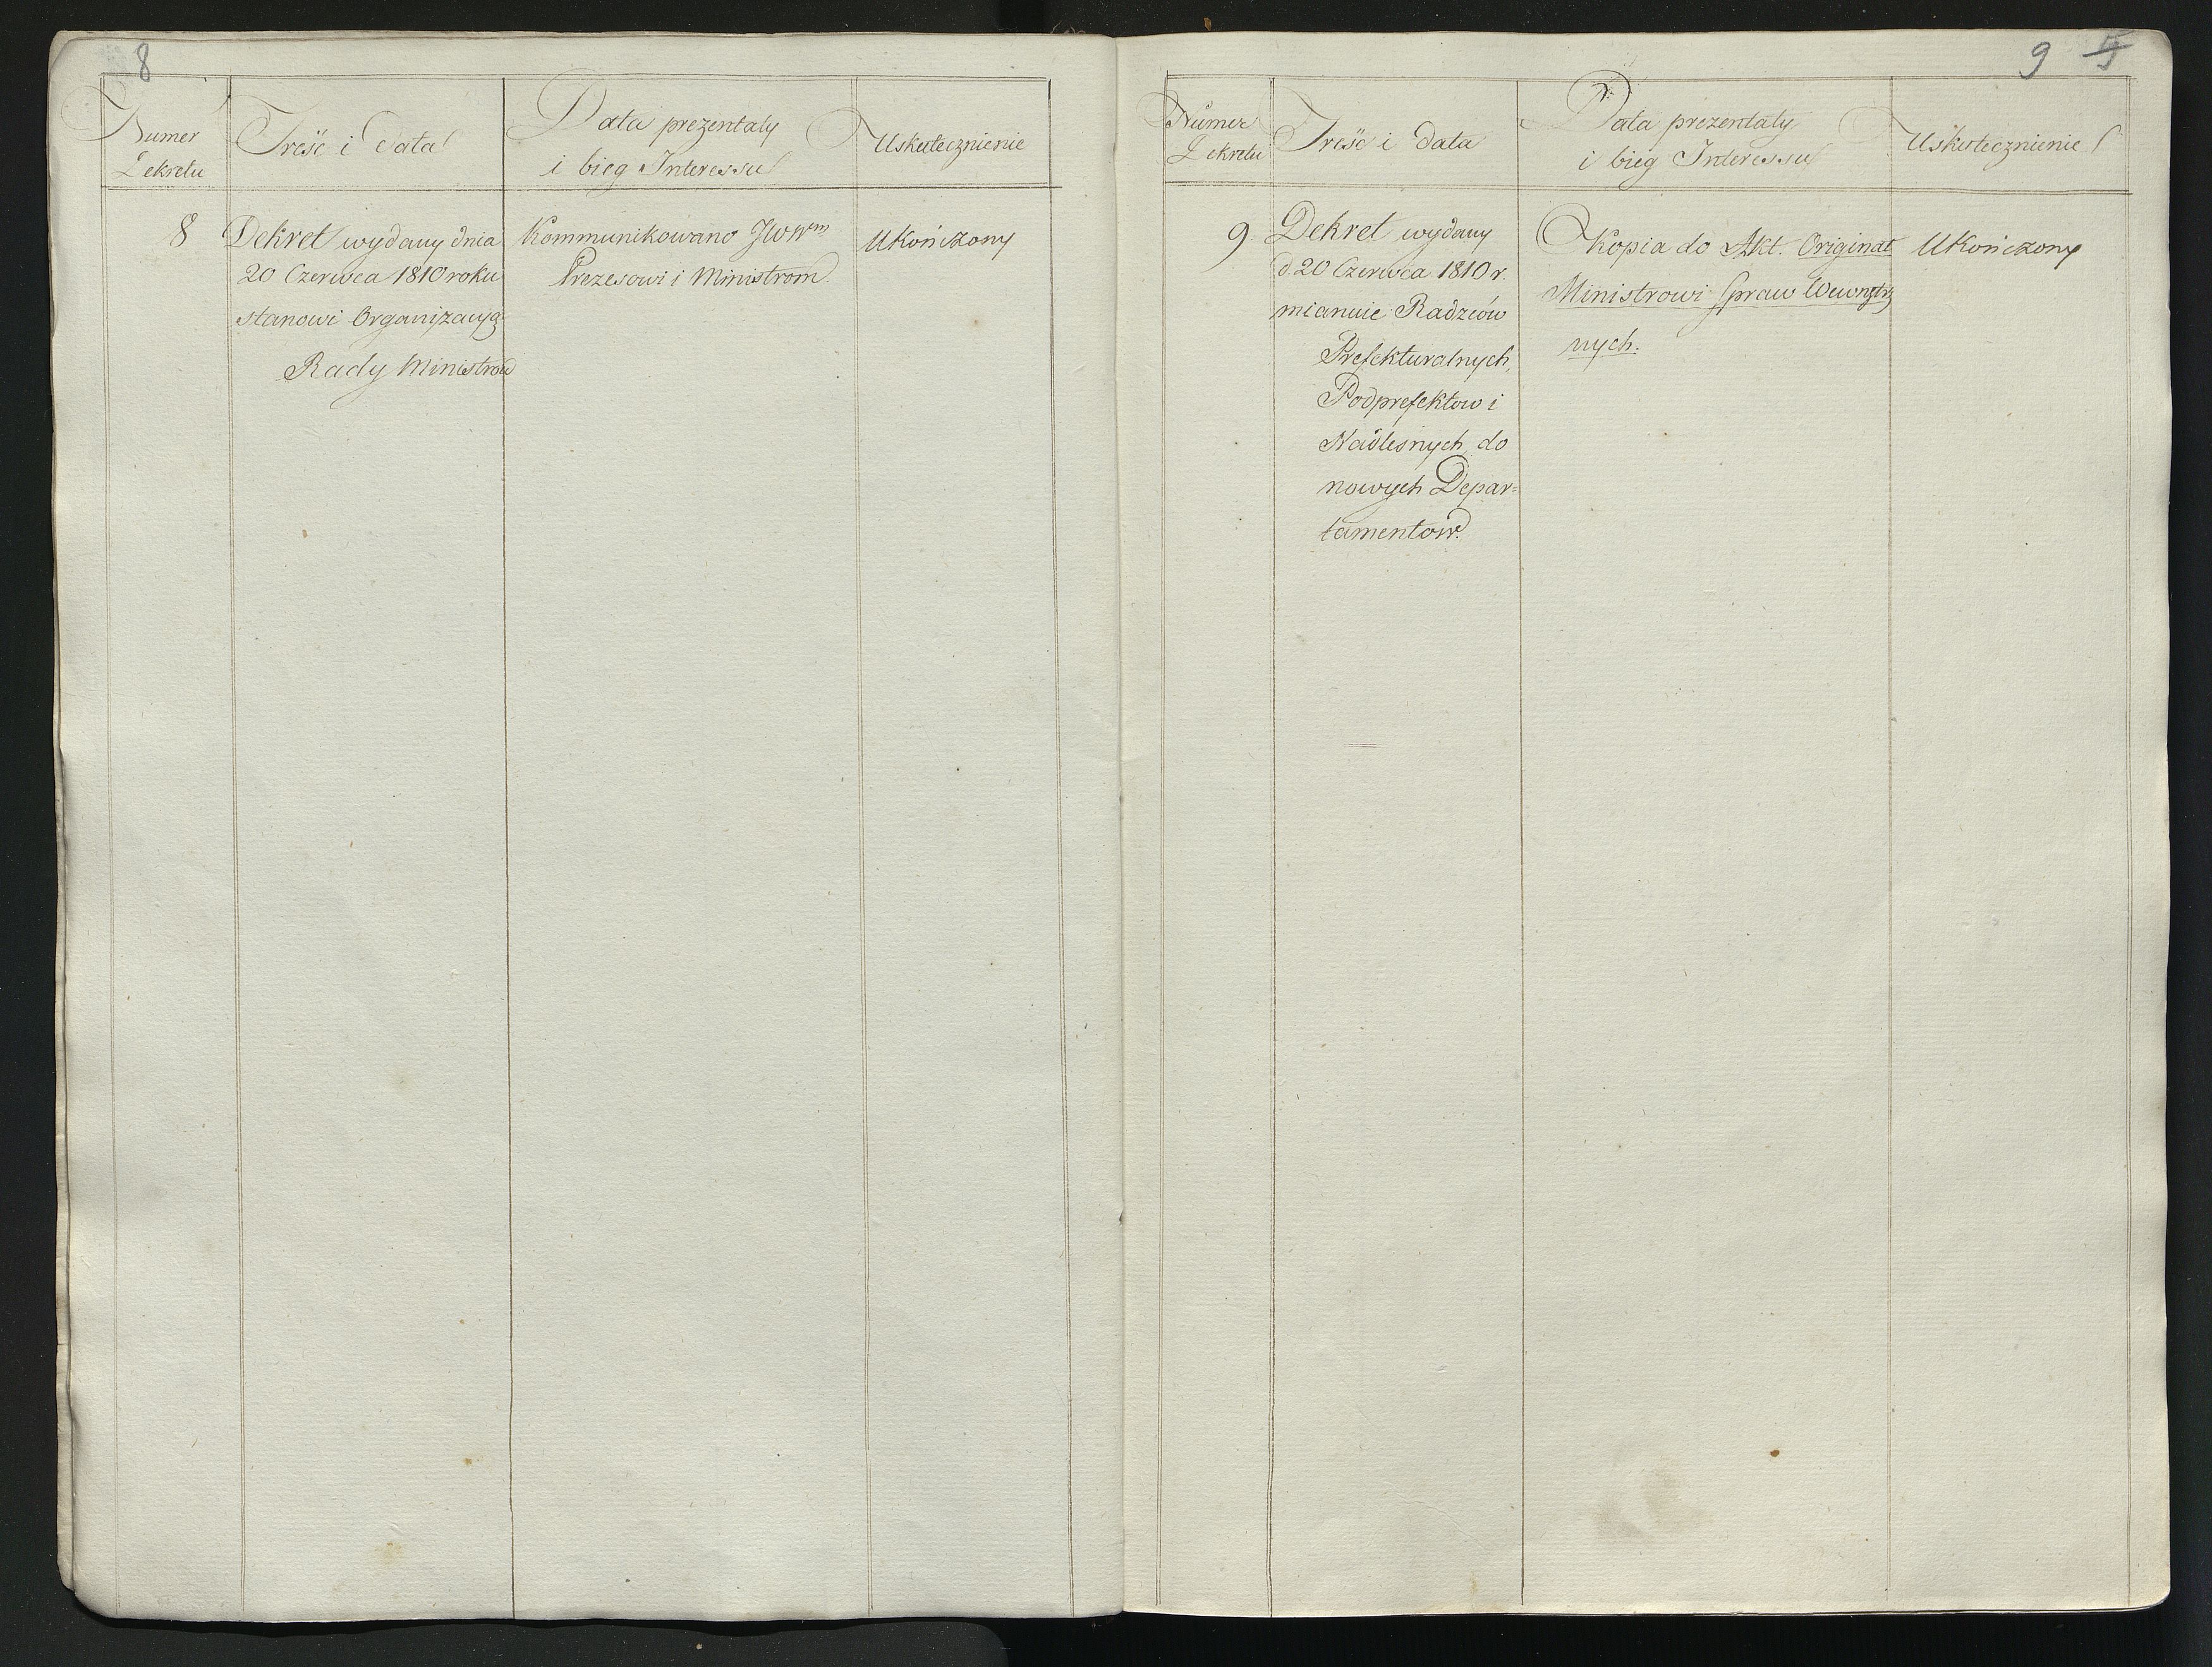 8
Numer
Dekretu
Treść i Data
Data prezentaty
i bieg Interessu
Uskutecznienie
8
Dekret wydany dnia
20 Czerwca 1810 roku
stanowi Organizacyą
Rady Ministrow
Kommunikowano JWWm
Prezesowi i Ministrom.
Ukończony
9 5
Numer
Dekretu
Treść i Data
Data prezentaty
i bieg Interessu
Uskutecznienie
9.
Dekret wydany
d. 20 Czerwca 1810 r.
mianuie Radzców
Prefekturalnych,
Podprefektow i
Nadlesnych do
nowych Depar=
tamentow.
Kopia do Akt. Originał
Ministrowi Spraw Wewnętrz
nych.
Ukończony